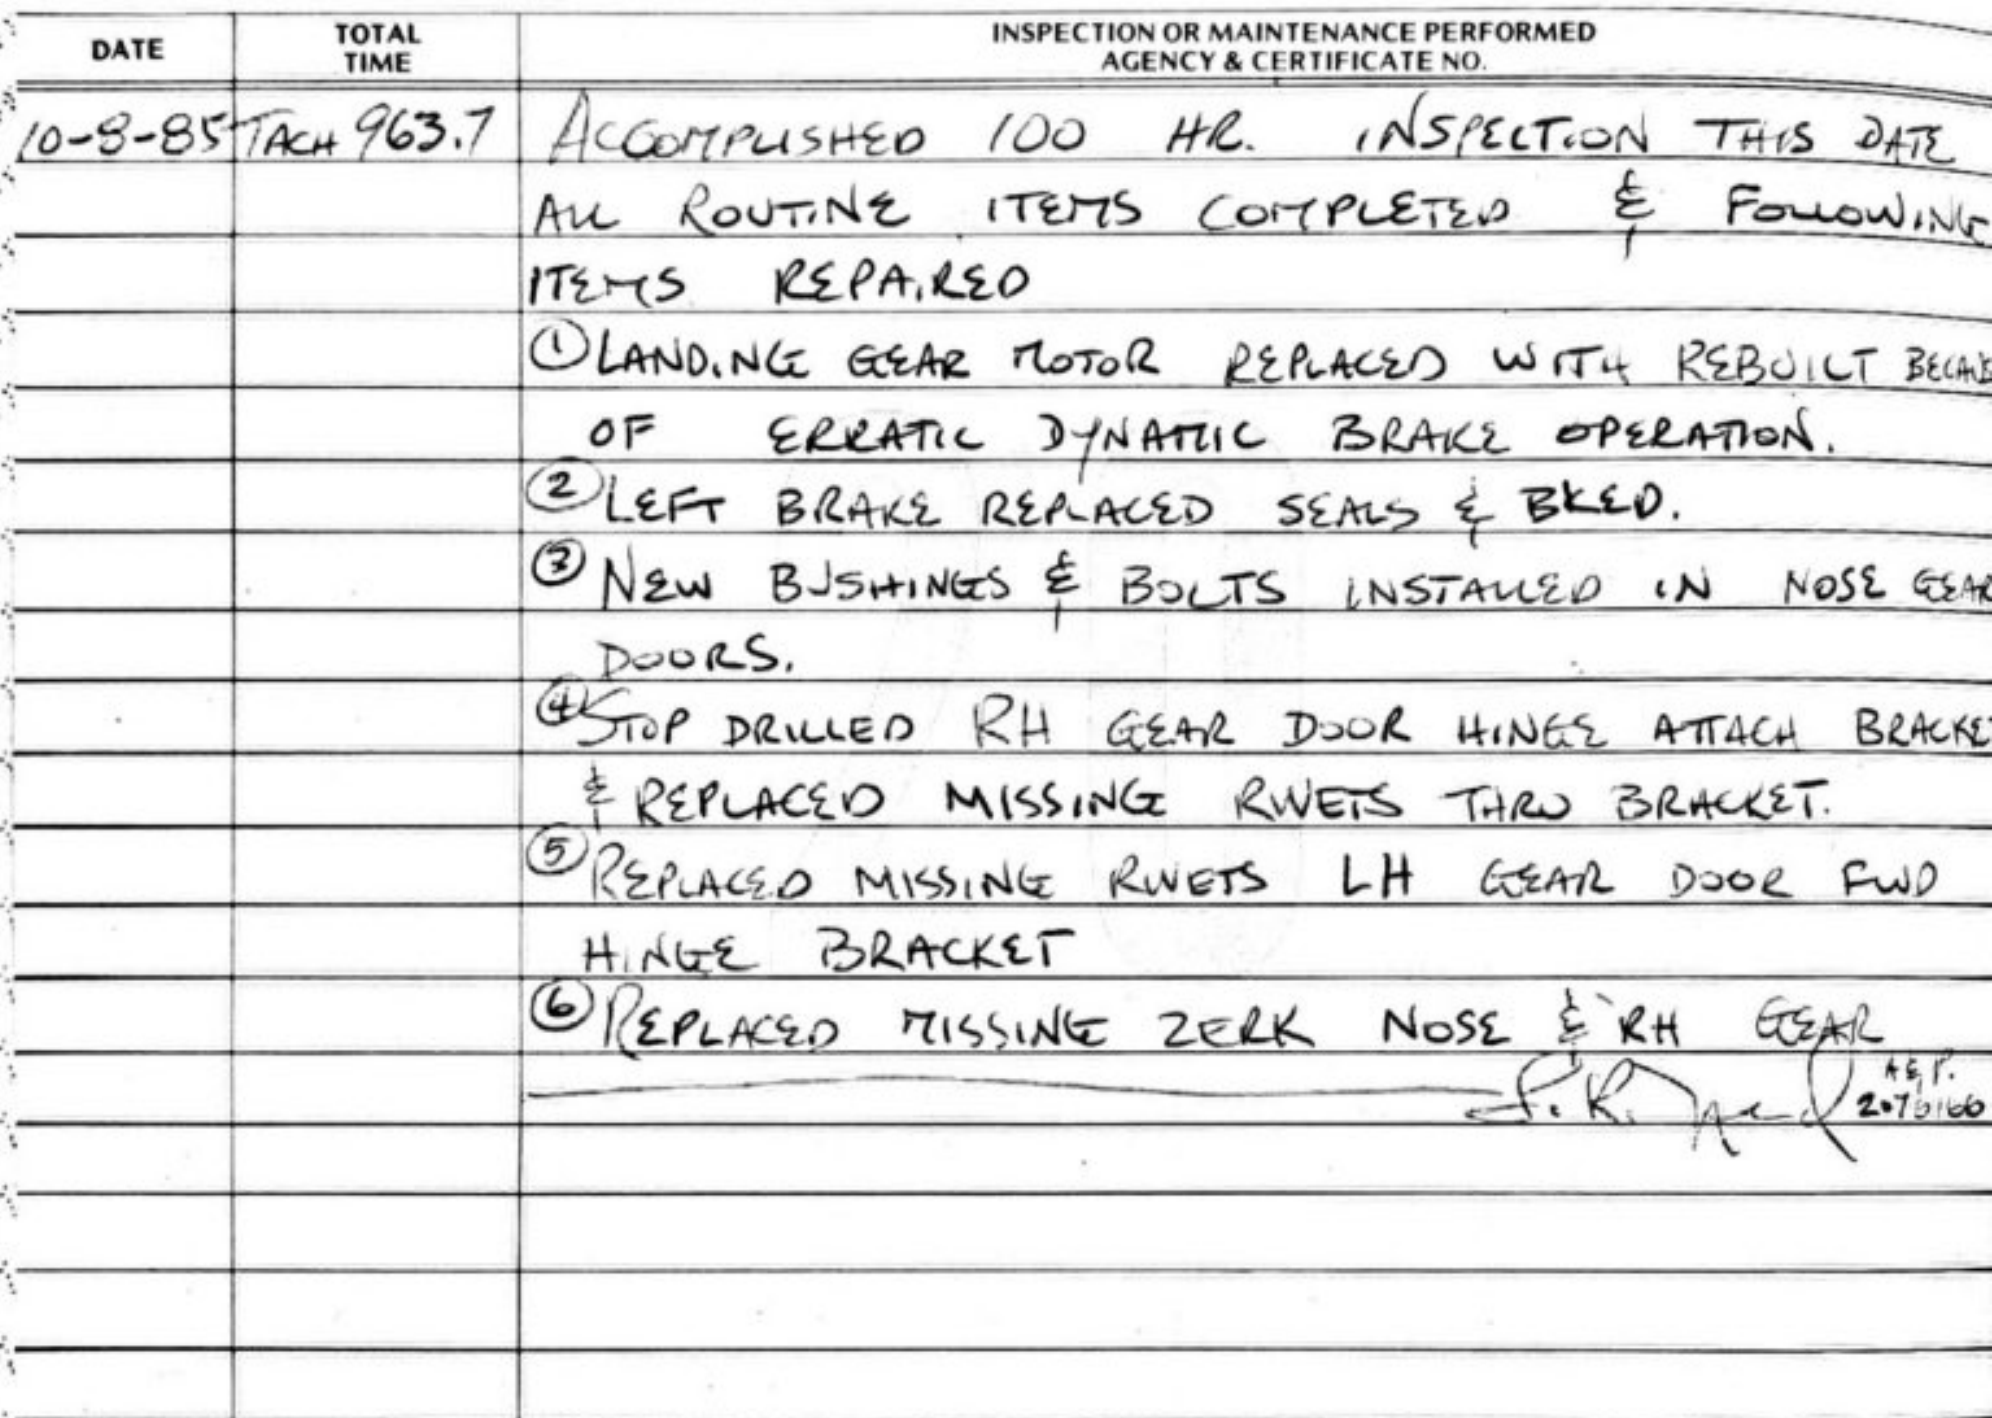 DATE
TOTAL
TIME
INSPECTION OR MAINTENANCE PERFORMED
AGENCY & CERTIFICATE NO.
10-8-85 TACH 963.7 ACCOMPLISHED 100 HR. INSPECTION THIS DATE
ALL ROUTINE ITEMS COMPLETED & FOLLOWING
ITEMS REPAIRED
① LANDING GEAR MOTOR REPLACED WITH REBUILT
OF ERRATIC DYNAMIC BRAKE OPERATION.
② LEFT BRAKE REPLACED SEALS & BKED.
③ NEW BUSHINGS & BOLTS INSTALLED IN NOSE GEAR
DOORS.
④ STOP DRILLED RH GEAR DOOR HINGE ATTACH BRACKET
& REPLACED MISSING RIVETS THRU BRACKET.
⑤ REPLACED MISSING RIVETS LH GEAR DOOR FWD
HINGE BRACKET
⑥ REPLACED MISSING ZERK NOSE & RH GEAR
A&P.